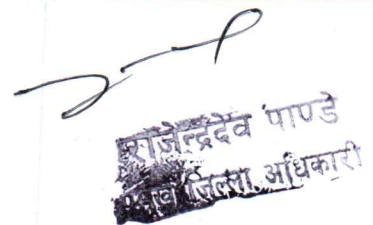 राजेन्द्रदेव पाण्डे
जिल्ला अधिकारी